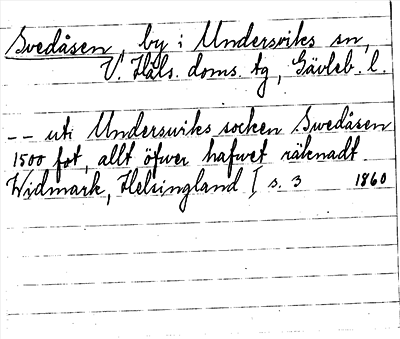 Svedåsen, by i Undersviks sn,
V. Häls. doms. tg, Gävleb. l.
-- uti Undersviks socken Swedåsen
1500 fot, allt öfwer hafwet räknadt.
Widmark, Helsingland I s. 3 1860